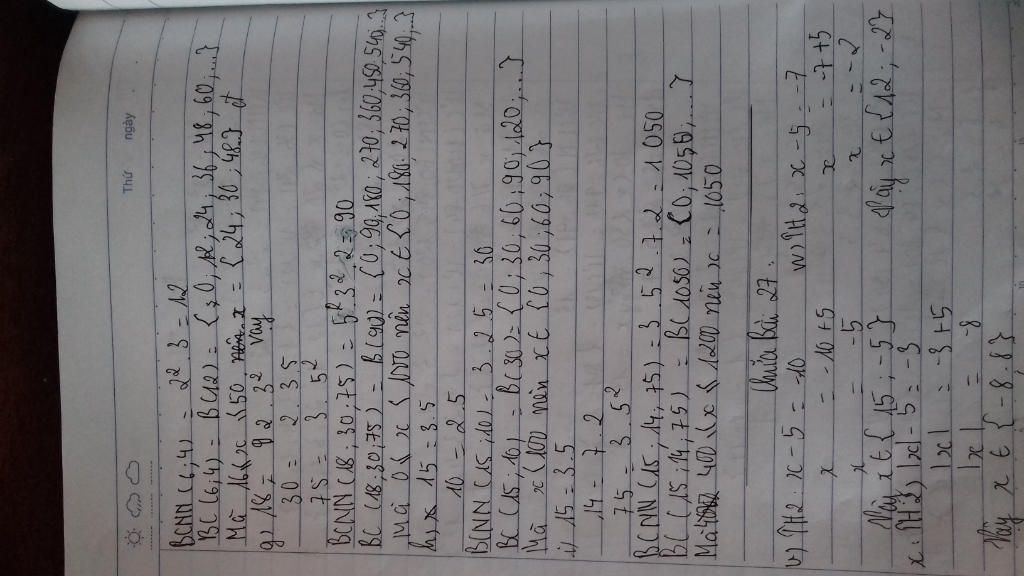 Thứ
ngày
BCNN (6,4) = 2² . 3 = 12
BC (6,4) = B(12) = {0, 12, 24, 36, 48, 60, ...}
Mà 16 < x < 50 x = {24; 30; 48}
vậy
g) 18 = 2 3²
30 = 2 3 5
75 = 3 . 5²
BCNN (18, 30, 75) = 5² . 3² . 2 = 90
BC (18, 30, 75) = B(90) = {0, 90, 180, 270, 360, 450, 540, ...}
Mà 0 < x < 1000 nên x ∈ {0, 180, 270, 360, 540, ...}
h) 15 = 3.5
10 = 2.5
BCNN (15, 10) = 3 . 2 5 = 30
BC (15, 10) = B(30) = {0; 30; 60; 90; 120, ...}
Mà x < 100 nên x ∈ {0, 30; 60, 90}
i) 15 = 3.5
14 = 7 . 2
75 = 3 . 5²
BCNN (15, 14, 75) = 3 . 5² . 7 . 2 = 1050
BC (15, 14, 75) = B(1050) = {0, 1050, ...}
Mà 400 < x < 1200 nên x = 1050
Chữa Bài 27:
v) TH2: x - 5 = -10 w) TH2: x - 5 = -7
x = -10 + 5 x = -7 + 5
x = -5 x = -2
Vậy x ∈ {15; -5} Vậy x ∈ {12; -2}
x: TH2) |x| - 5 = -3
|x| = -3 + 5
|x| = -8
Vậy x ∈ {-8; 8}